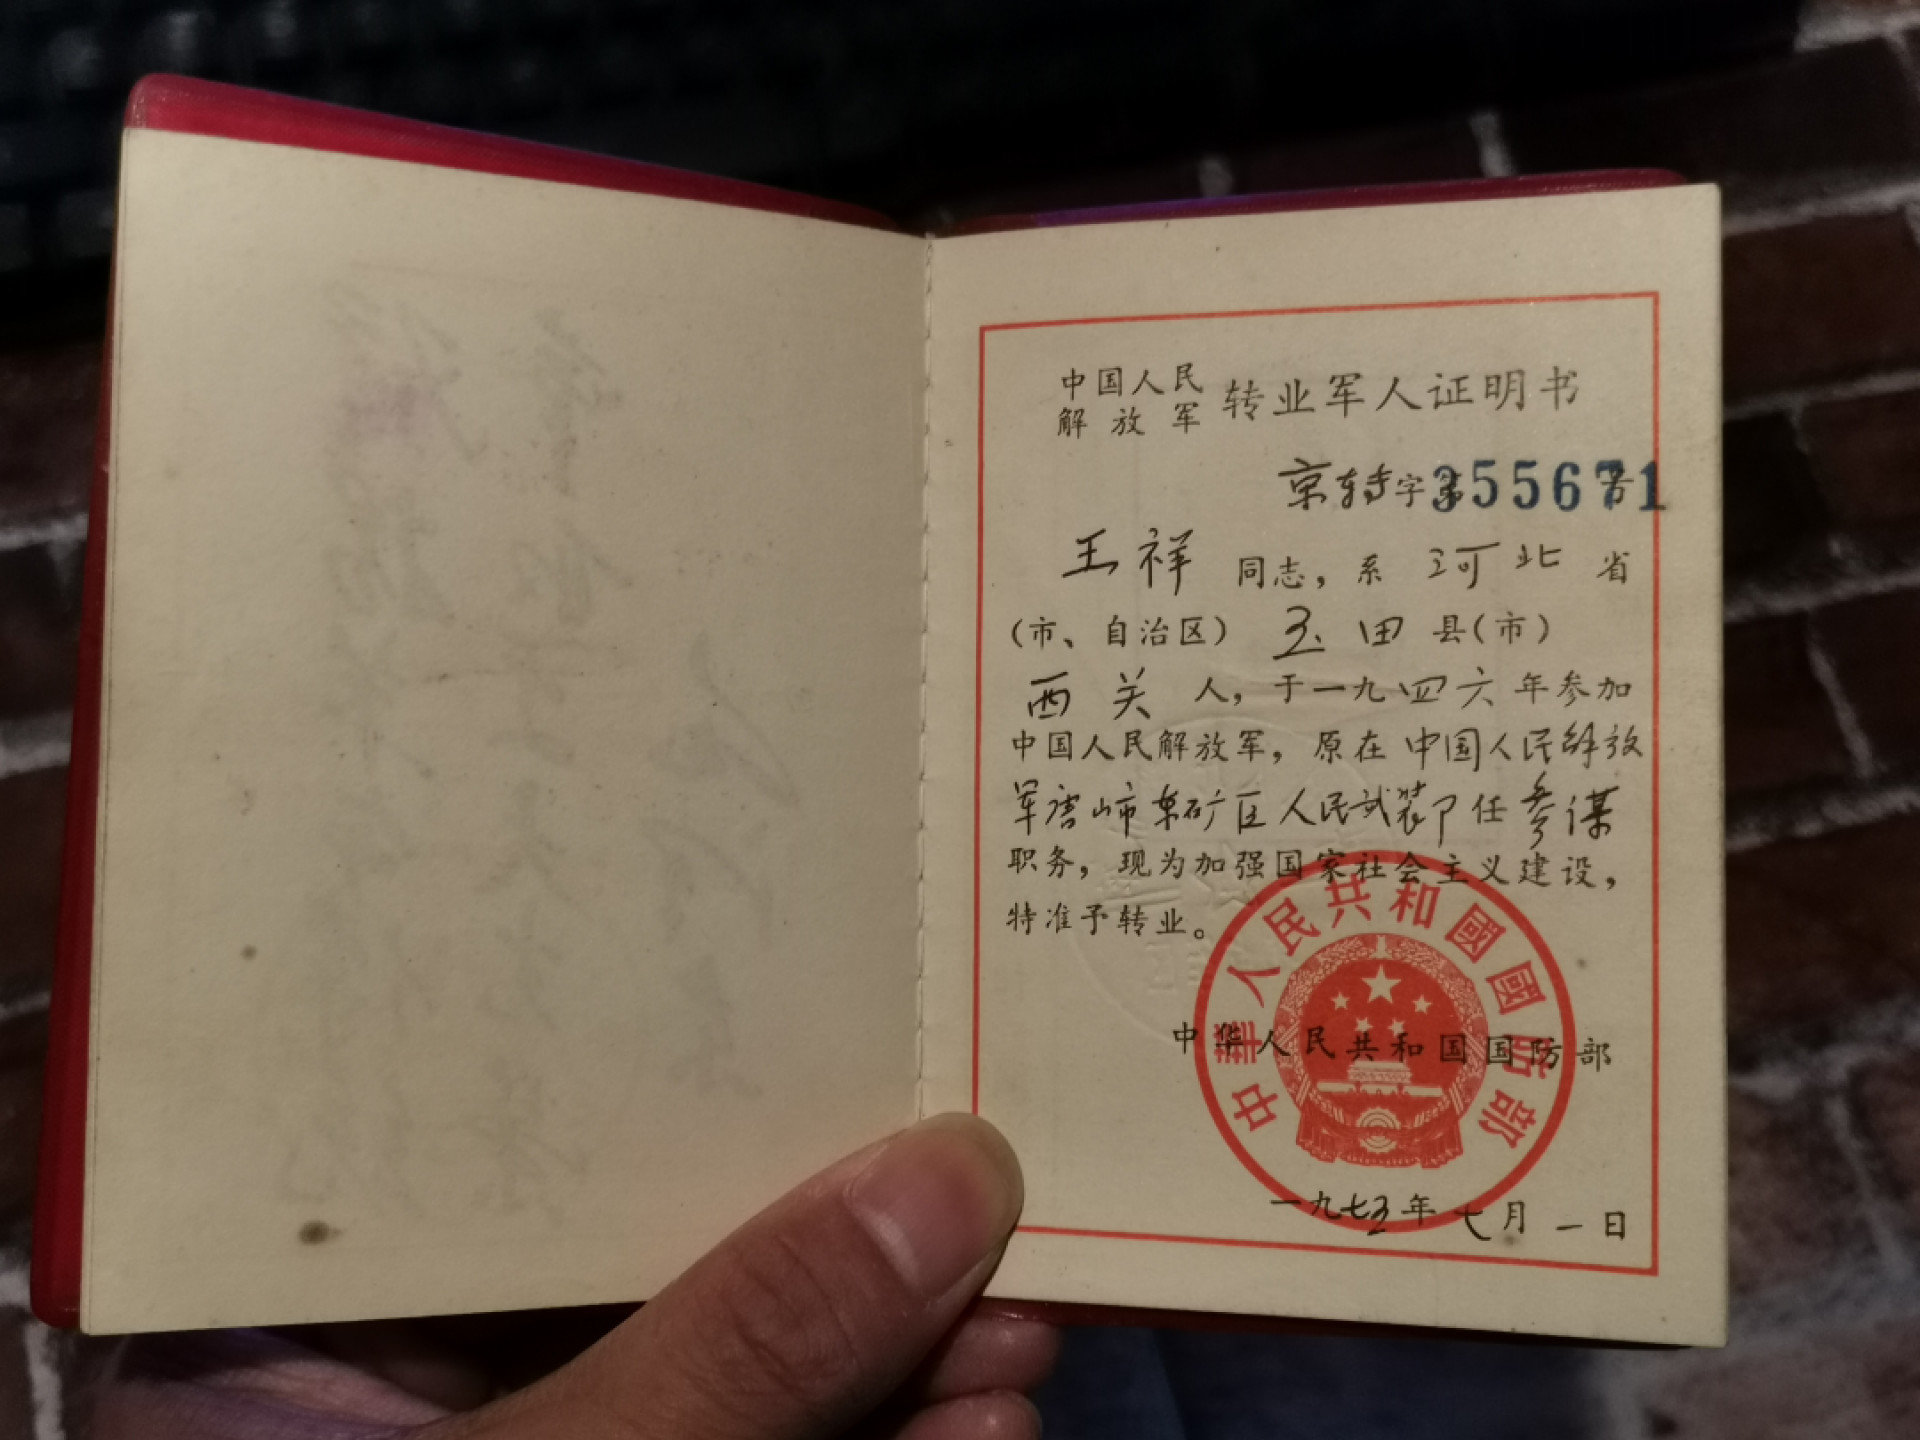 中国人民
解放军
转业军人证明书
京转字第355671号
王祥同志，系河北省
（市、自治区）玉田县（市）
西关人，于一九四六年参加
中国人民解放军，原在中国人民解放
军唐山市东矿区人民武装部任参谋
职务，现为加强国家社会主义建设，
特准予转业。
中华人民共和国国防部
中華人民共和國國防部
一九七五年七月一日